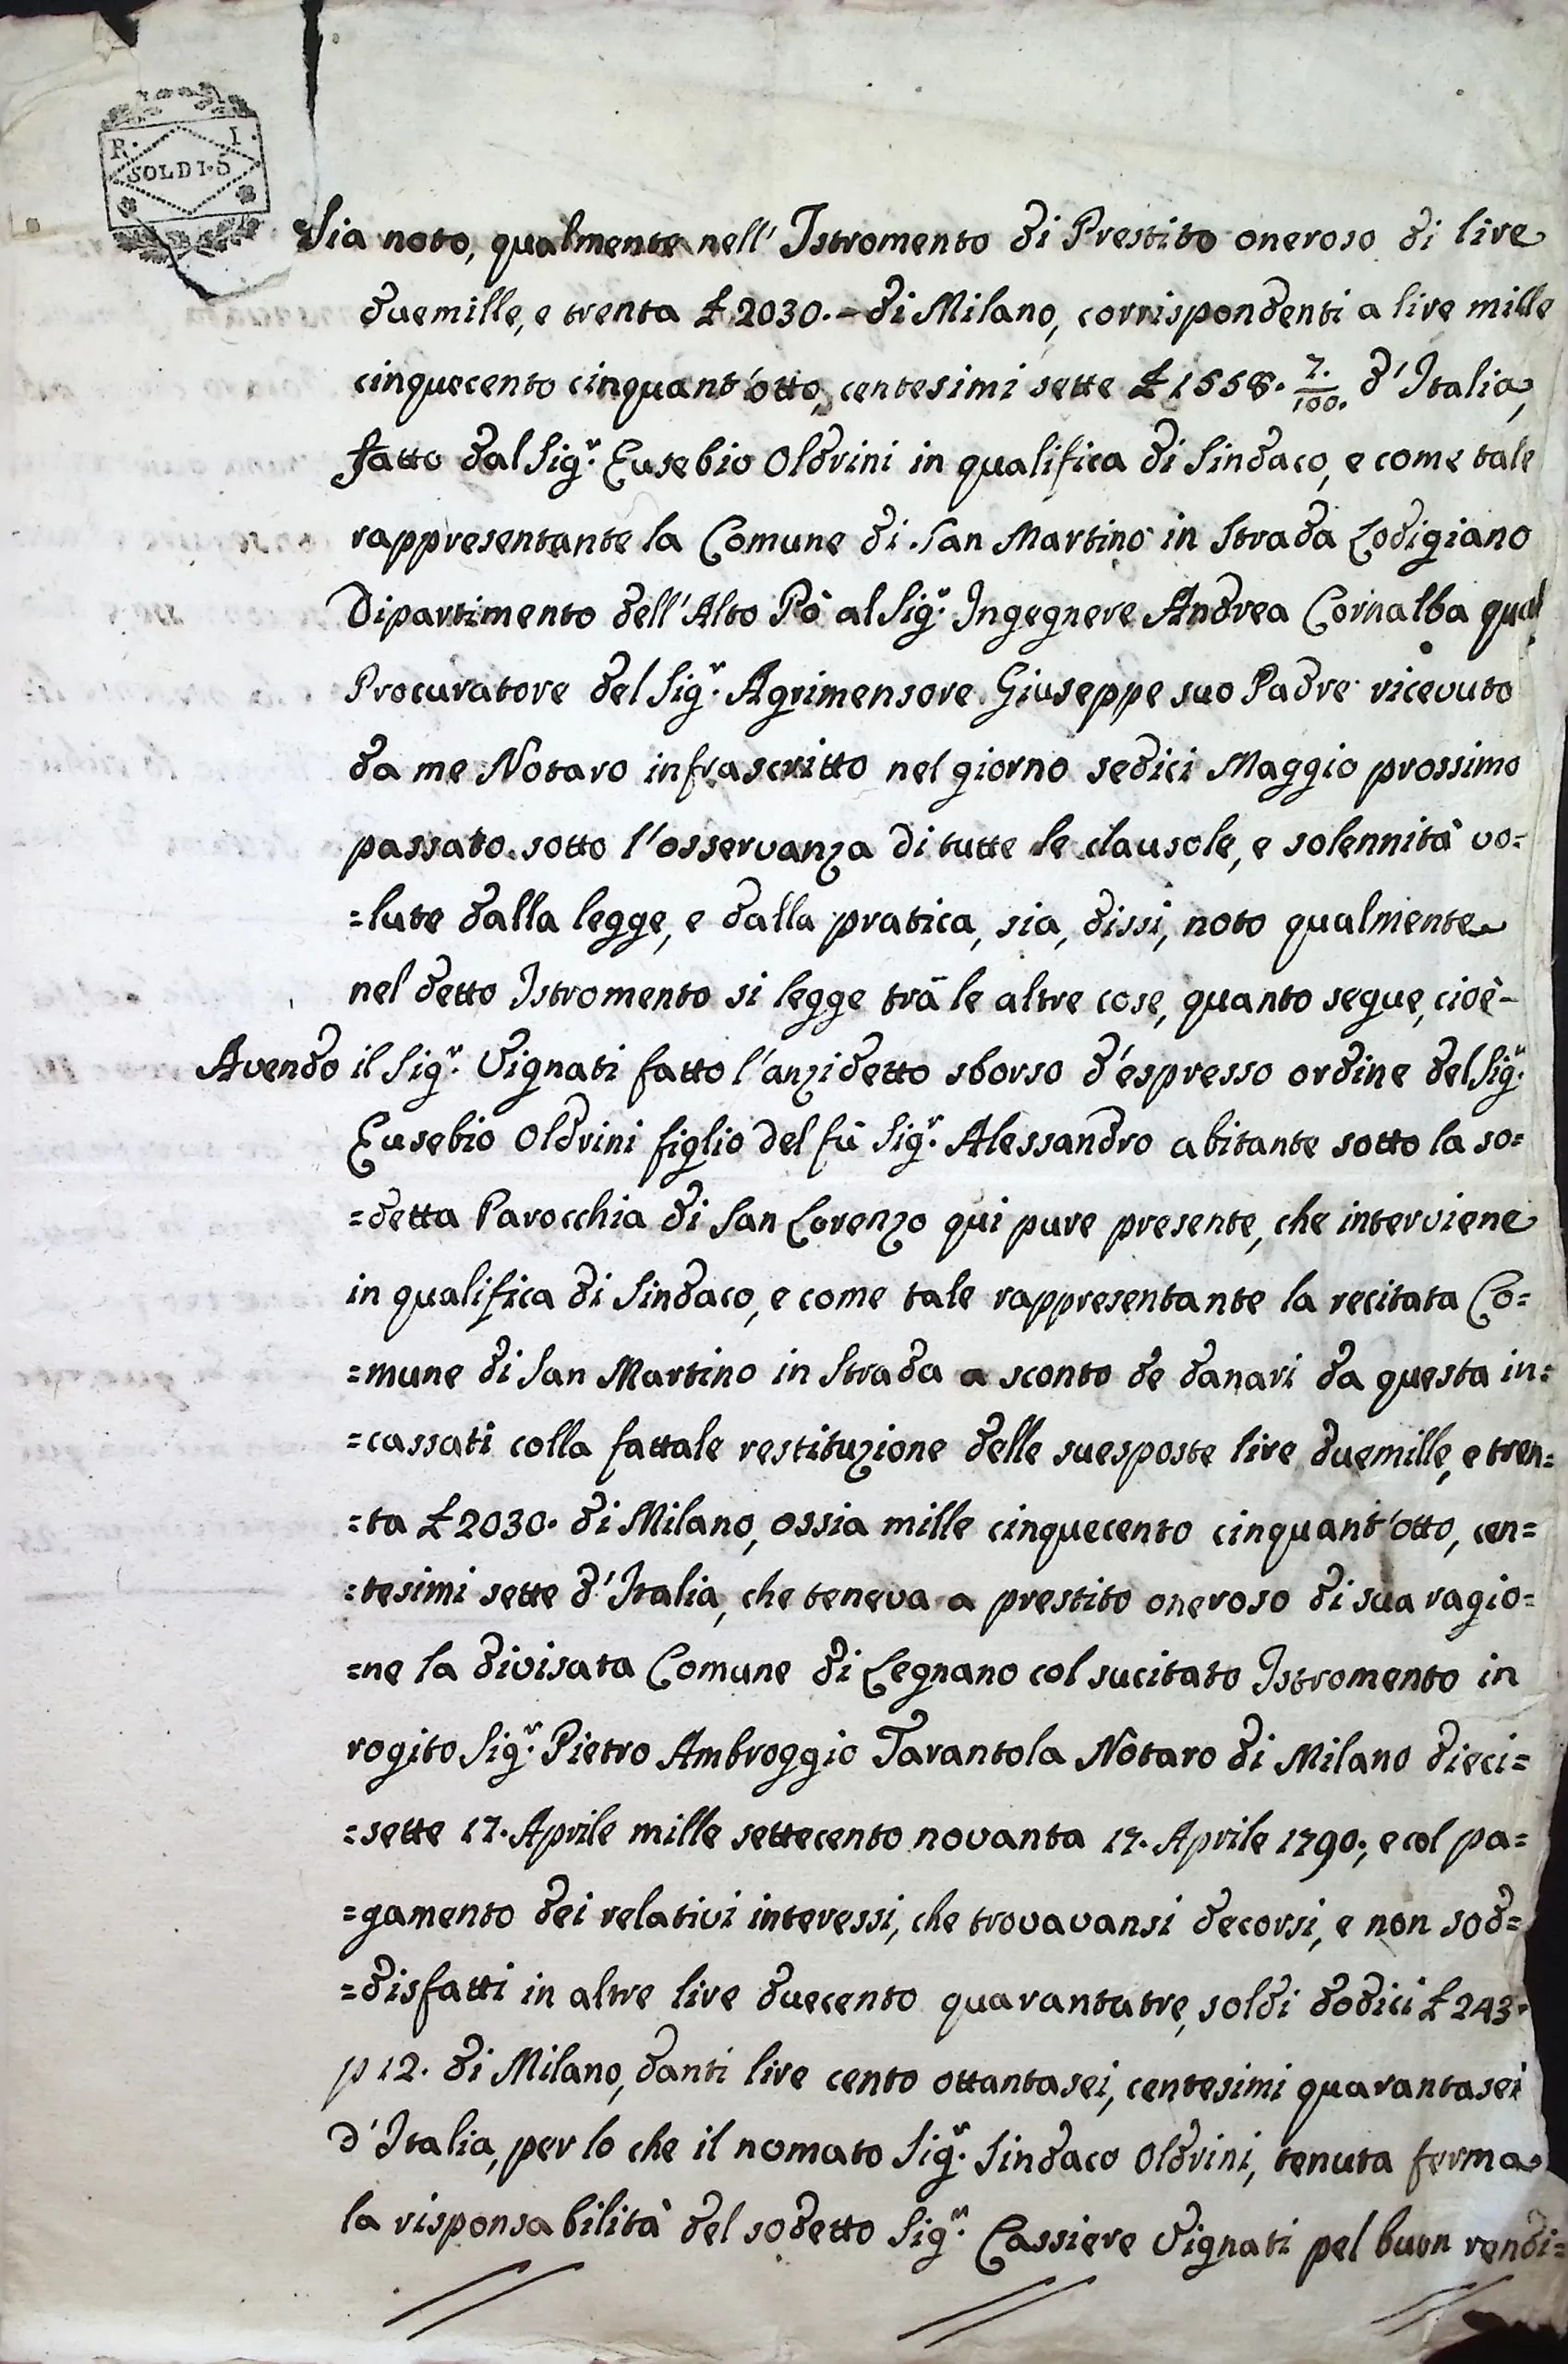 R. I.
SOLDI. 5
Sia noto, qualmente nell' Istromento di Prestito oneroso di lire
duemille, e trenta £ 2030.- di Milano, corrispondenti a lire mille
cinquecento cinquant'otto, centesimi sette £ 1558. 7./100. d'Italia,
fatto dal Sigr. Eusebio Oldrini in qualifica di Sindaco, e come tale
rappresentante la Comune di San Martino in Strada Lodigiano
Dipartimento dell'Alto Pò al Sigr. Ingegnere Andrea Cornalba qual
Procuratore del Sigr. Agrimensore Giuseppe suo Padre ricevuto
da me Notaro infrascritto nel giorno sedici Maggio prossimo
passato sotto l'osservanza di tutte le clausole, e solennità vo=
=lute dalla legge, e dalla pratica, sia, dissi, noto qualmente
nel detto Istromento si legge trà le altre cose, quanto segue, cioè-
Avendo il Sigr. Vignati fatto l'anzidetto sborso d'espresso ordine del Sigr.
Eusebio Oldrini figlio del fù Sigr. Alessandro abitante sotto la so=
=detta Parocchia di San Lorenzo qui pure presente, che interviene
in qualifica di Sindaco, e come tale rappresentante la recitata Co=
=mune di San Martino in Strada a sconto de danari da questa in=
=cassati colla fattale restituzione delle suesposte lire duemille, e tren=
=ta £ 2030. di Milano, ossia mille cinquecento cinquant'otto, cen=
=tesimi sette d'Italia, che teneva a prestito oneroso di sua ragio=
=ne la divisata Comune di Legnano col sucitato Istromento in
rogito Sigr. Pietro Ambroggio Tarantola Notaro di Milano dieci=
=sette 17. Aprile mille settecento novanta 17. Aprile 1790., e col pa=
=gamento dei relativi interessi, che trovavansi decorsi, e non sod=
=disfatti in altre lire duecento quarantatre, soldi dodici £ 243.
p 12. di Milano, danti lire cento ottantasei, centesimi quarantasei
d'Italia, per lo che il nomato Sigr. Sindaco Oldrini, tenuta ferma
la risponsabilità del sodetto Sigr. Cassiere Vignati pel buon rendi=